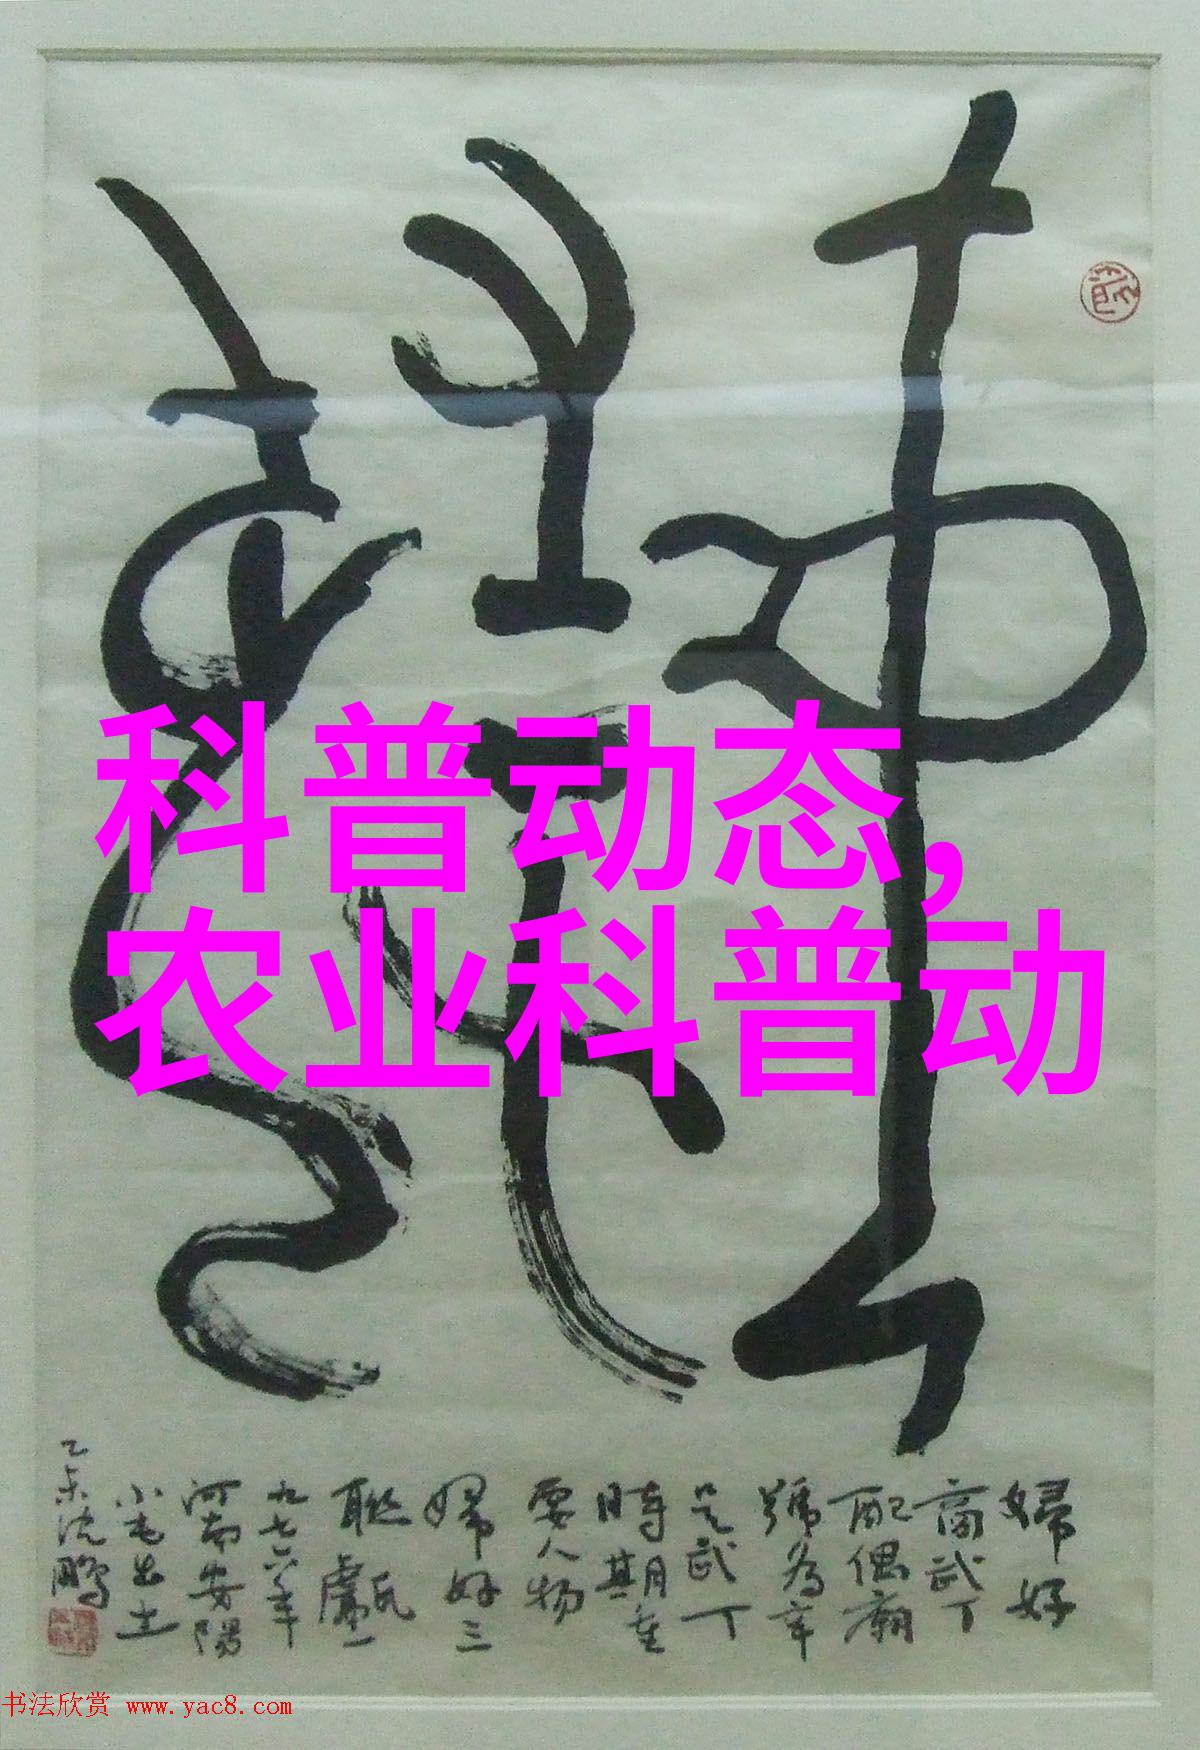 科普动态,
农业科普动
婦好
商武丁
配偶廟
號为辛
是武丁
時期重
要人物
婦好三
聯甗一
九七六年
河南安陽
小屯出土
乙未沈鹏
书法欣赏 www.yac8.com